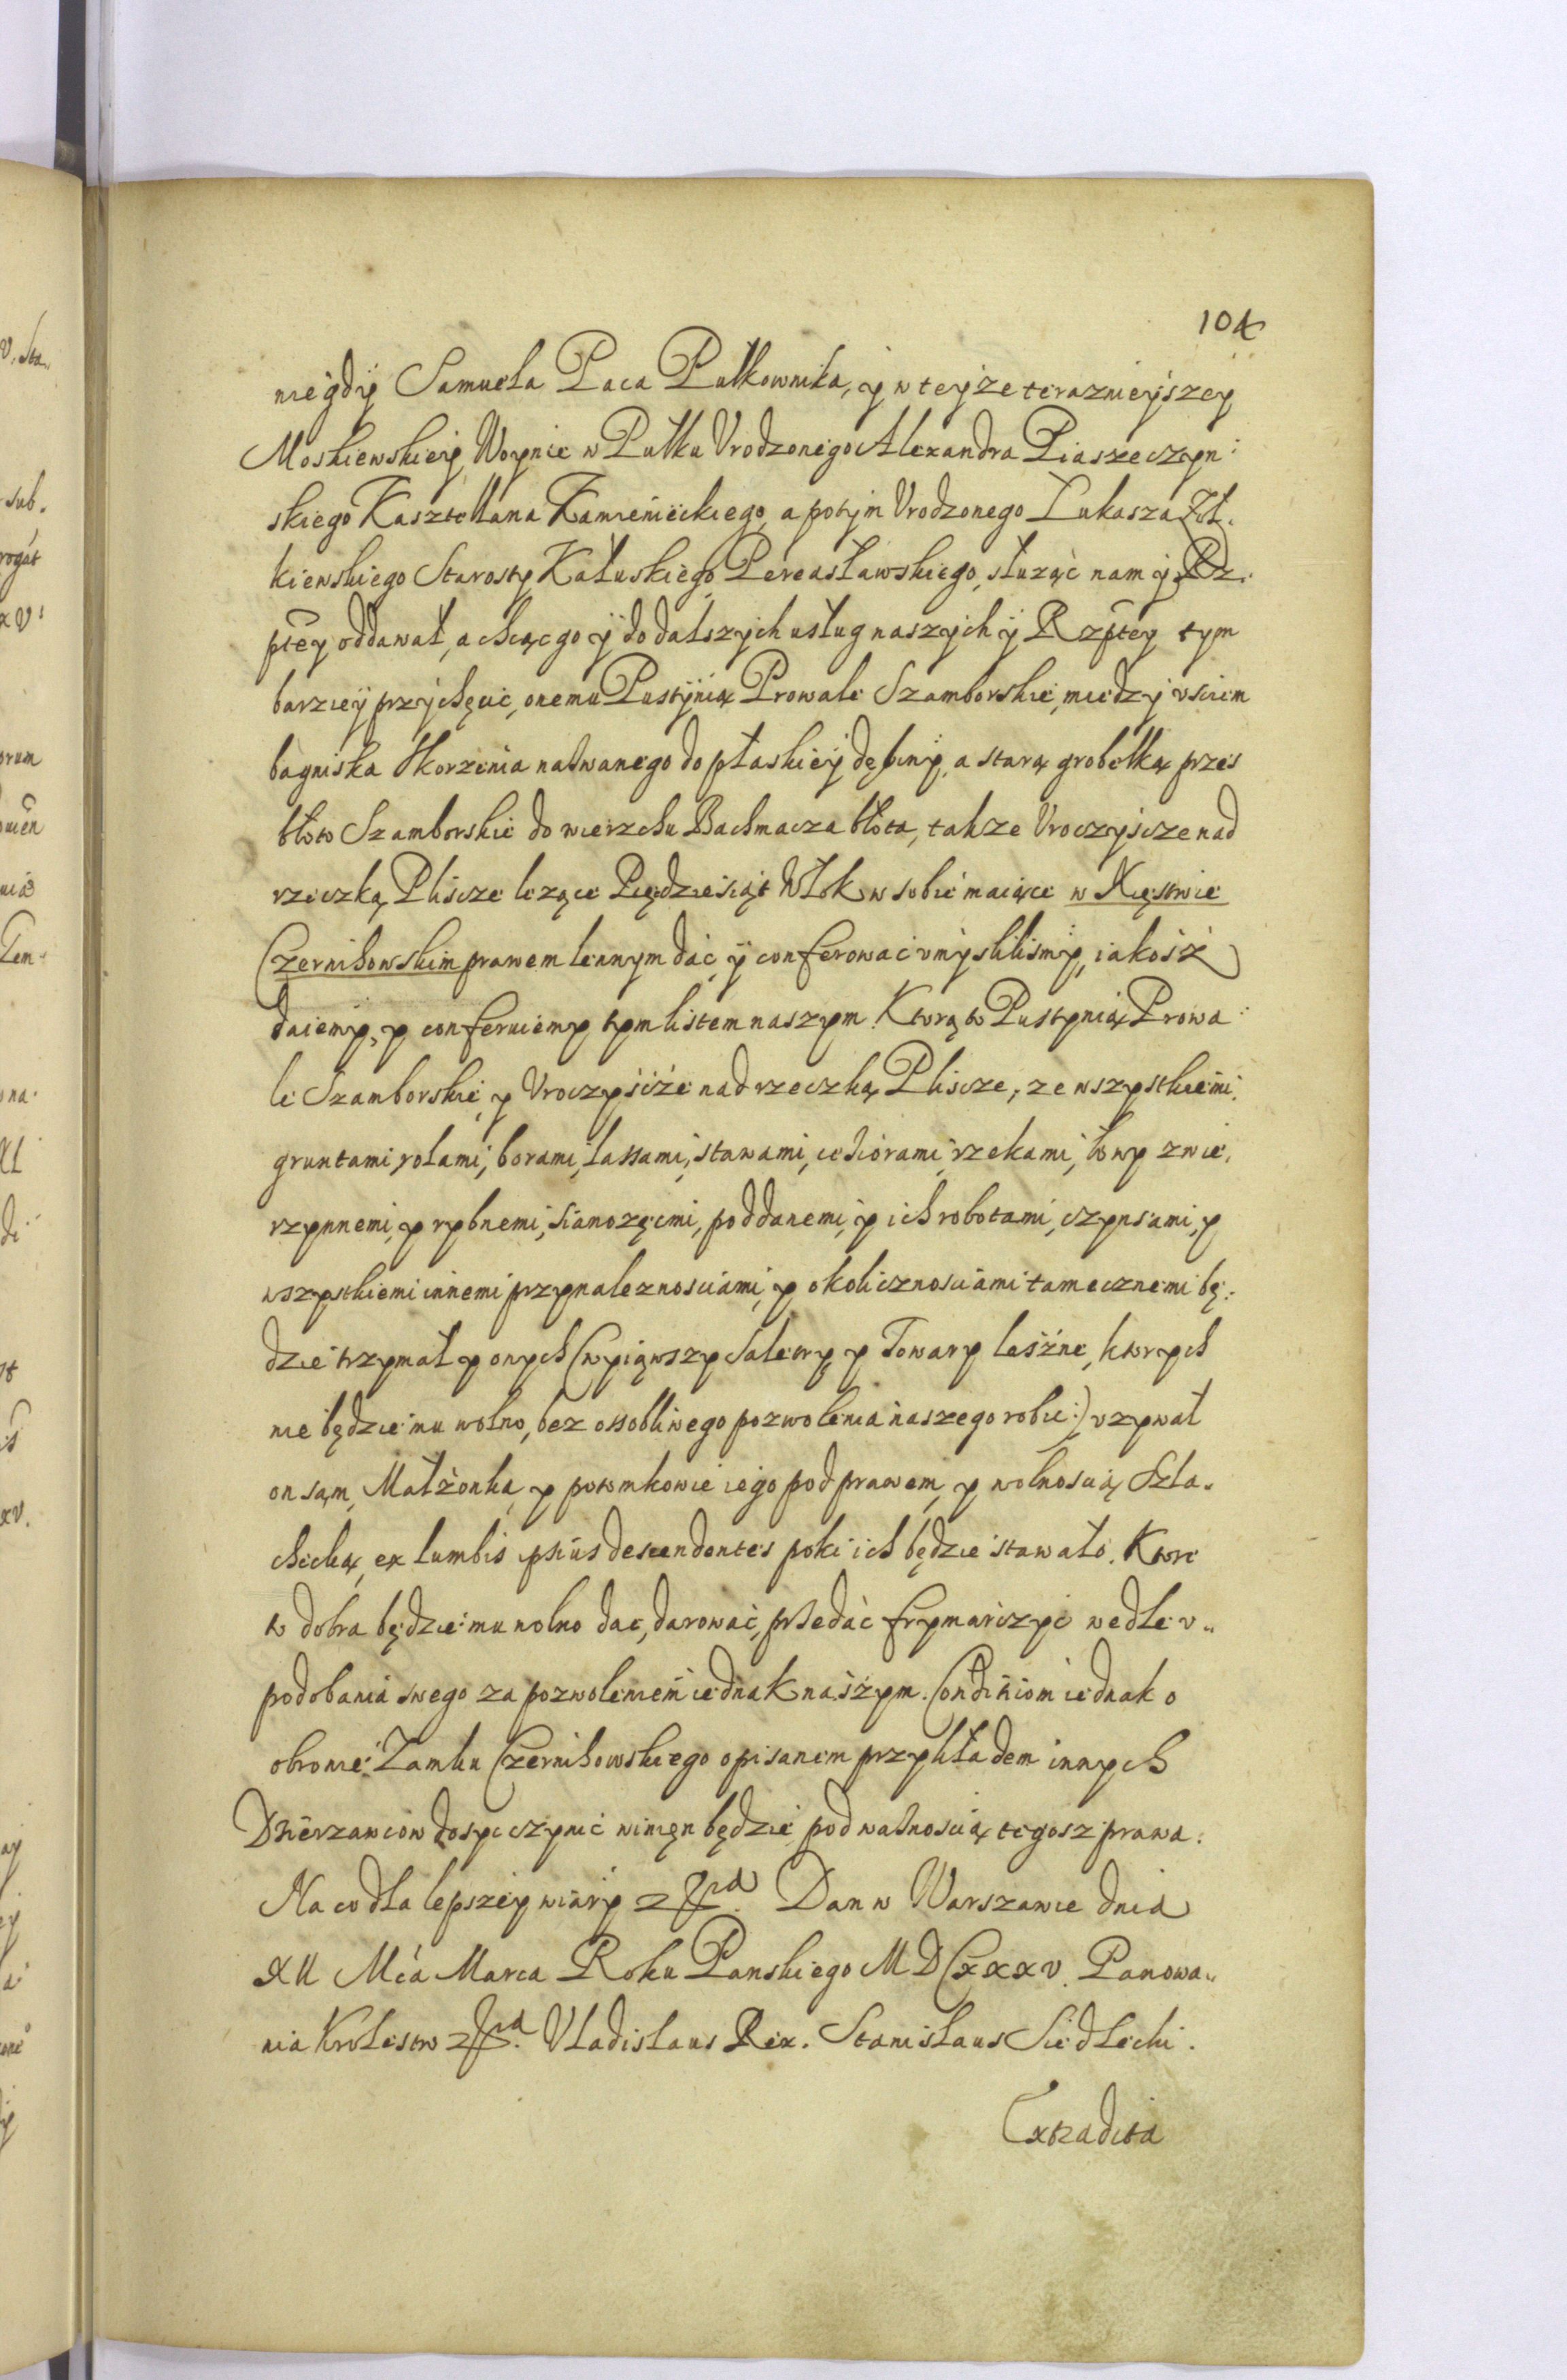 104
niegdy Samuela Paca Pułkownika, y w teyże terazniejszey
Moskiewskiey Woynie w Pułku Vrodzonego Alexandra Piaszeczyn:
skiego Kasztellana Kamienieckiego, a potym Vrodzonego Łukasza Żoł.
kiewskiego Starosty Kałuskiego, Pereasławskiego, służąc nam y Rz.
ptey oddawał, a chcąc go y do dalszych usług naszych y Rzptey tym
barziey przychęcic, onemu Pustynią Prowale Szamborskie, miedzy vściem
bagniska Skorzenia nazwanego do płaskiey dębiny, a starą grobelką przes
błoto Szamborskie do wierzchu Bachmacza błota, także Vroczyscze nad
rzeczką Pliscze lezące Pięcdziesiąt Włok w sobie maiące w Xięstwie
Czernihowskim prawem lennym dać y conferować vmyslilismy, iakosz
daiemy, y conferuiemy tym listem naszym. Ktorą to Pustynią Prowa:
le Szamborskie, y Vroczyscze nad rzeczką Pliscze, ze wszystkiemi
gruntami, rolami, borami, lassami, stawami, ieziorami, rzekami, łowy zwie.
rzynnemi, y rybnemi, sianozęcmi, poddanemi, y ich robotami, czynsami, y
wszystkiemi innemi przynaleznosciami, y okolicznosciami tamecznemi bę:
dzie trzymał y onych (wyiąwszy Saletry y Towary leśne, ktorych
nie będzie mu wolno, bez ossobliwego pozwolenia naszego robic:) vzywał
on sąm, Małżonka, y potomkowie iego pod prawem, y wolnoscią Szla.
checką, ex lumbis ipsius descendentes poki ich będzie stawało. Ktore
to dobra będzie mu wolno dac, darować, przedać frymarczyc wedle v"
podobania swego za pozwoleniem iednak naszym. Conditiom iednak o
obronie Zamku Czernihowskiego opisanem przykładem innych
Dzierzawcow dosyc czynic winięn będzie pod ważnoscią tegosz prawa.
Na co dla lepszey wiary etc. Dan w Warszawie dnia
XII Mca Marca Roku Panskiego MDCxxxv. Panowa"
nia Krolestw etc. Vladislaus Rex. Stanislaus Siedlecki.
Extradita